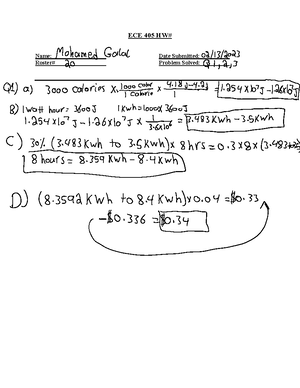 ECE 405 HW#
Name: Mohamed Galal Date Submitted: 02/13/2023
Roster# 20 Problem Solved: Q1,2,3
Q1) a) 3000 calories × 1000 calor / 1 calorie × 4.18J-4.2J / 1 = 1.254×10⁷J-1.26×10⁷J
B) 1 watt hour = 3600J 1 kWh = 1000 × 3600J
1.254×10⁷J - 1.26×10⁷J × 1 / 3.6×10⁶ = 3.483 kWh - 3.5 kWh
C) 30% (3.483 KWh to 3.5 KWh) × 8 hrs = 0.3×8×(3.483
8 hours = 8.359 KWh - 8.4 KWh
D) (8.3592 KWh to 8.4 KWh) × 0.04 = $0.33
- $0.336 = $0.34